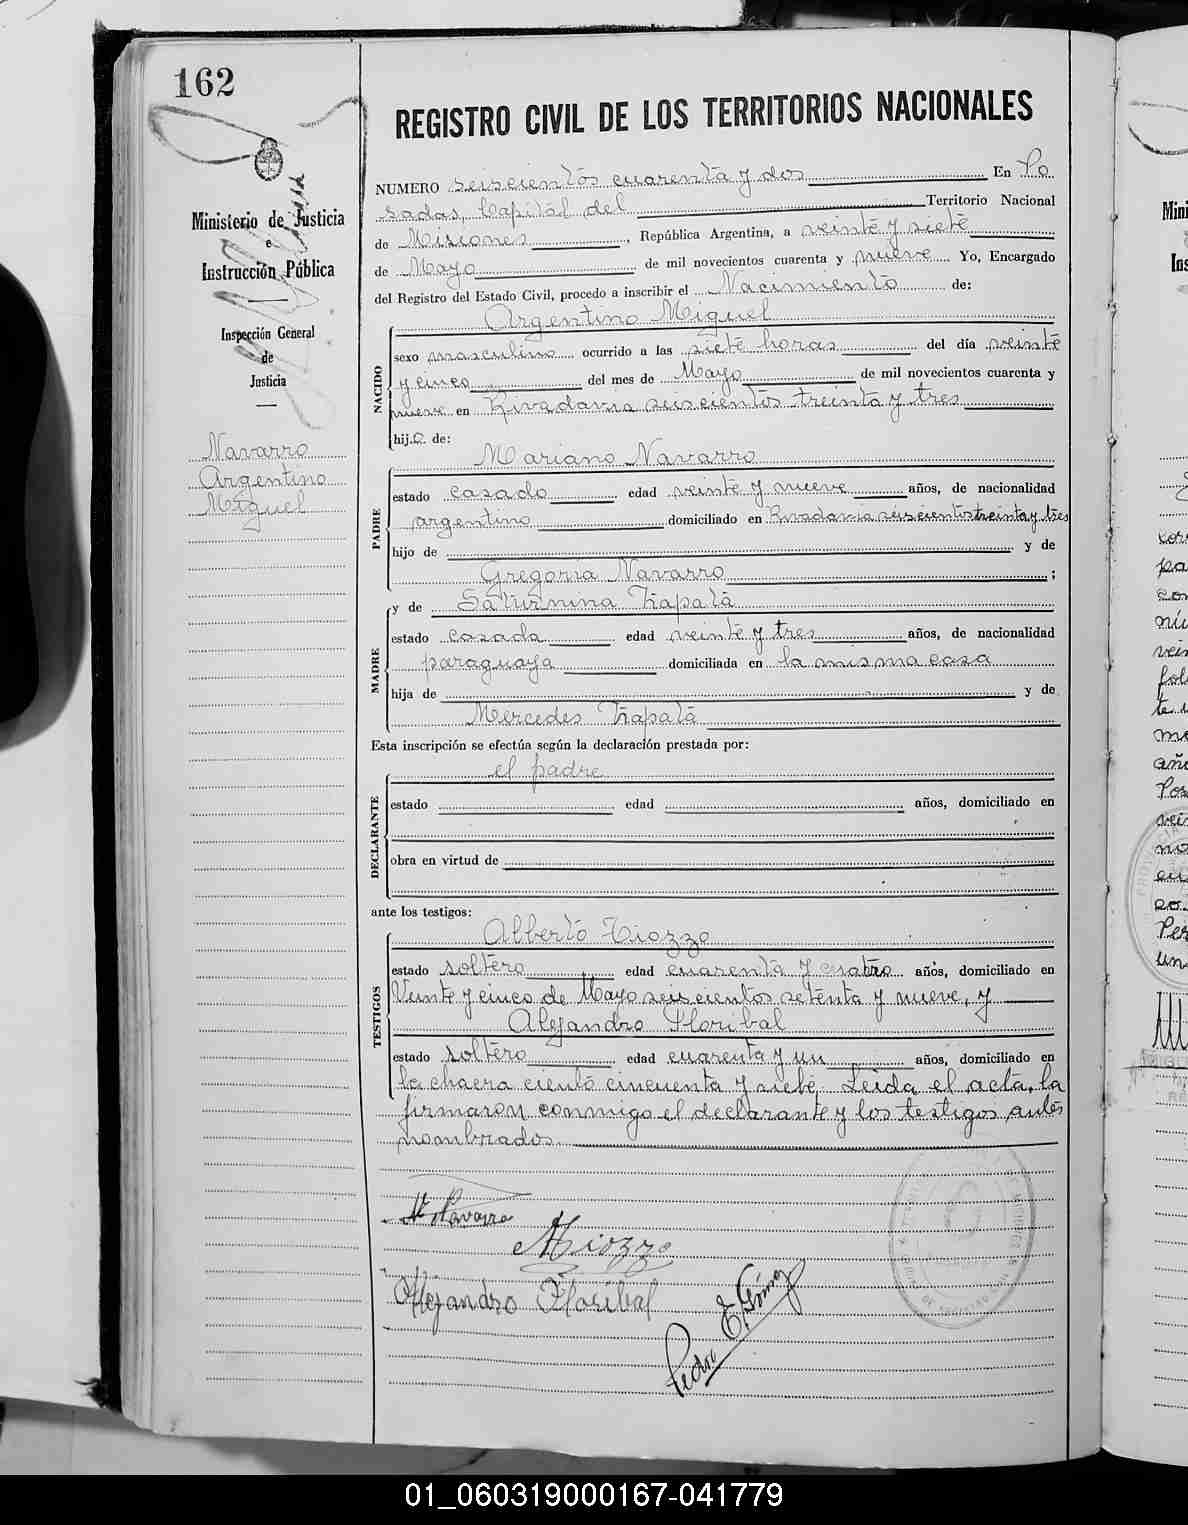 162
REGISTRO CIVIL DE LOS TERRITORIOS NACIONALES
Ministerio de Justicia
e
Instrucción Pública
Inspección General
de
Justicia
Navarro
Argentino
Miguel
NUMERO seiscientos cuarenta y dos En Po
sadas, Capital del Territorio Nacional
de Misiones, República Argentina, a veinte y siete
de Mayo de mil novecientos cuarenta y nueve Yo, Encargado
del Registro del Estado Civil, procedo a inscribir el Nacimiento de:
Argentino Miguel
NACIDO
sexo masculino ocurrido a las siete horas del día veinte
y cinco del mes de Mayo de mil novecientos cuarenta y
nueve en Rivadavia seiscientos treinta y tres
hijo de:
Mariano Navarro
PADRE
estado casado edad veinte y nueve años, de nacionalidad
argentino domiciliado en Rivadavia seiscientos treinta y tres
hijo de y de
Gregoria Navarro ;
y de Saturnina
MADRE
estado casada edad veinte y tres años, de nacionalidad
paraguaya domiciliada en la misma casa
hija de y de
Mercedes
Esta inscripción se efectúa según la declaración prestada por:
el padre
DECLARANTE
estado edad años, domiciliado en
obra en virtud de
ante los testigos:
Alberto Tiozzo
TESTIGOS
estado soltero edad cuarenta y cuatro años, domiciliado en
Veinte y cinco de Mayo seiscientos setenta y nueve, y
Alejandro Floribal
estado soltero edad cuarenta y un años, domiciliado en
la chacra ciento cincuenta y siete. Leida el acta, la
firmaron conmigo el declarante y los testigos antes
nombrados.
M Navarro
ATiozzo
Alejandro Floribal
Pedro E. Gómez
01_060319000167-041779